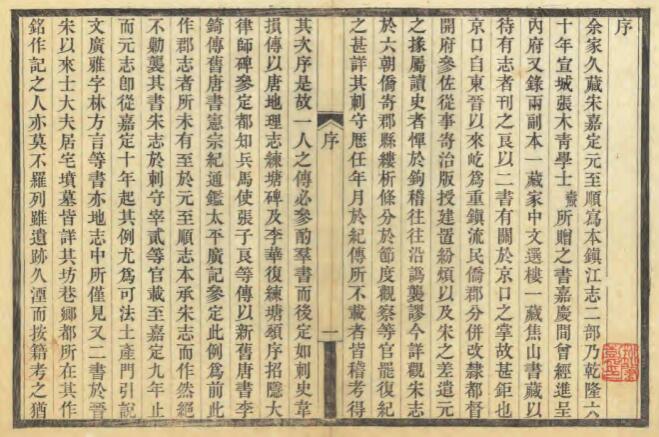 序
余家久藏朱嘉定元至順寫本鎮江志二部乃乾隆六
十年宣城張木青學士燾所贈之書嘉慶間曾經進呈
內府又錄兩副本一藏家中文選樓一藏焦山書藏以
待有志者刊之良以二書有關於京口之掌故甚鉅也
京口自東晉以來屹爲重鎮流民僑郡分併改隸都督
開府參佐從事寄治版授建置紛煩以及朱之差遣元
之掾屬讀史者憚於鉤稽往往沿譌襲謬今詳觀朱志
於六朝僑寄郡縣縷析條分於節度觀察等官罷復紀
之甚詳其刺守歷任年月於紀傳所不載者皆稽考得
序
一
其次序是故一人之傳必參酌羣書而後定如刺史韋
損傳以唐地理志練塘碑及李華復練塘頌序招隱大
律師碑參定都知兵馬使張子良等傳以新舊唐書李
錡傳舊唐書憲宗紀通鑑太平廣記參定此例爲前此
作郡志者所未有至於元至順志本承朱志而作然絕
不勦襲其書朱志於刺守宰貳等官載至嘉定九年止
而元志卽從嘉定十年起其例尤爲可法土產門引說
文廣雅字林方言等書亦地志中所僅見又二書於晉
朱以來士大夫居宅墳墓皆詳其坊巷鄉都所在其作
銘作記之人亦莫不羅列雖遺跡久湮而按籍考之猶